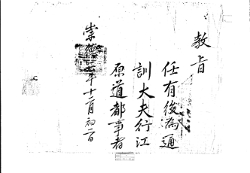 教旨
任有後為通
訓大夫行江
原道都事者
崇德七年十二月初二日